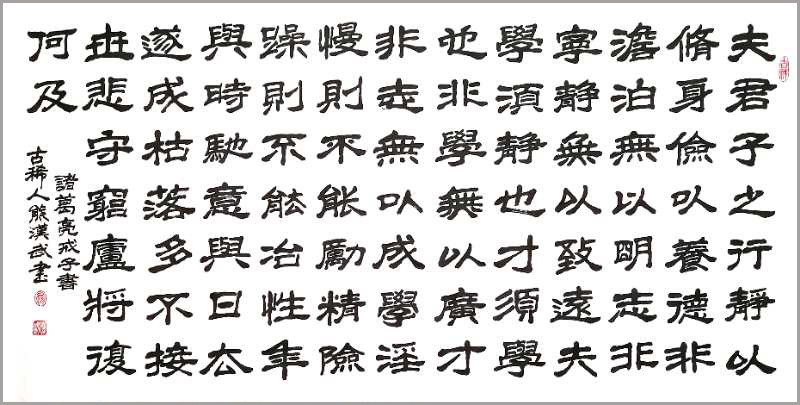 夫君子之行靜以
脩身儉以養德非
澹泊無以明志非
寧靜無以致遠夫
學須靜也才須學
也非學無以廣才
非志無以成學淫
慢則不能勵精險
躁則不能冶性年
與時馳意與日去
遂成枯落多不接
世悲守窮廬將復
何及
諸葛亮戒子書
古稀人熊漢武書